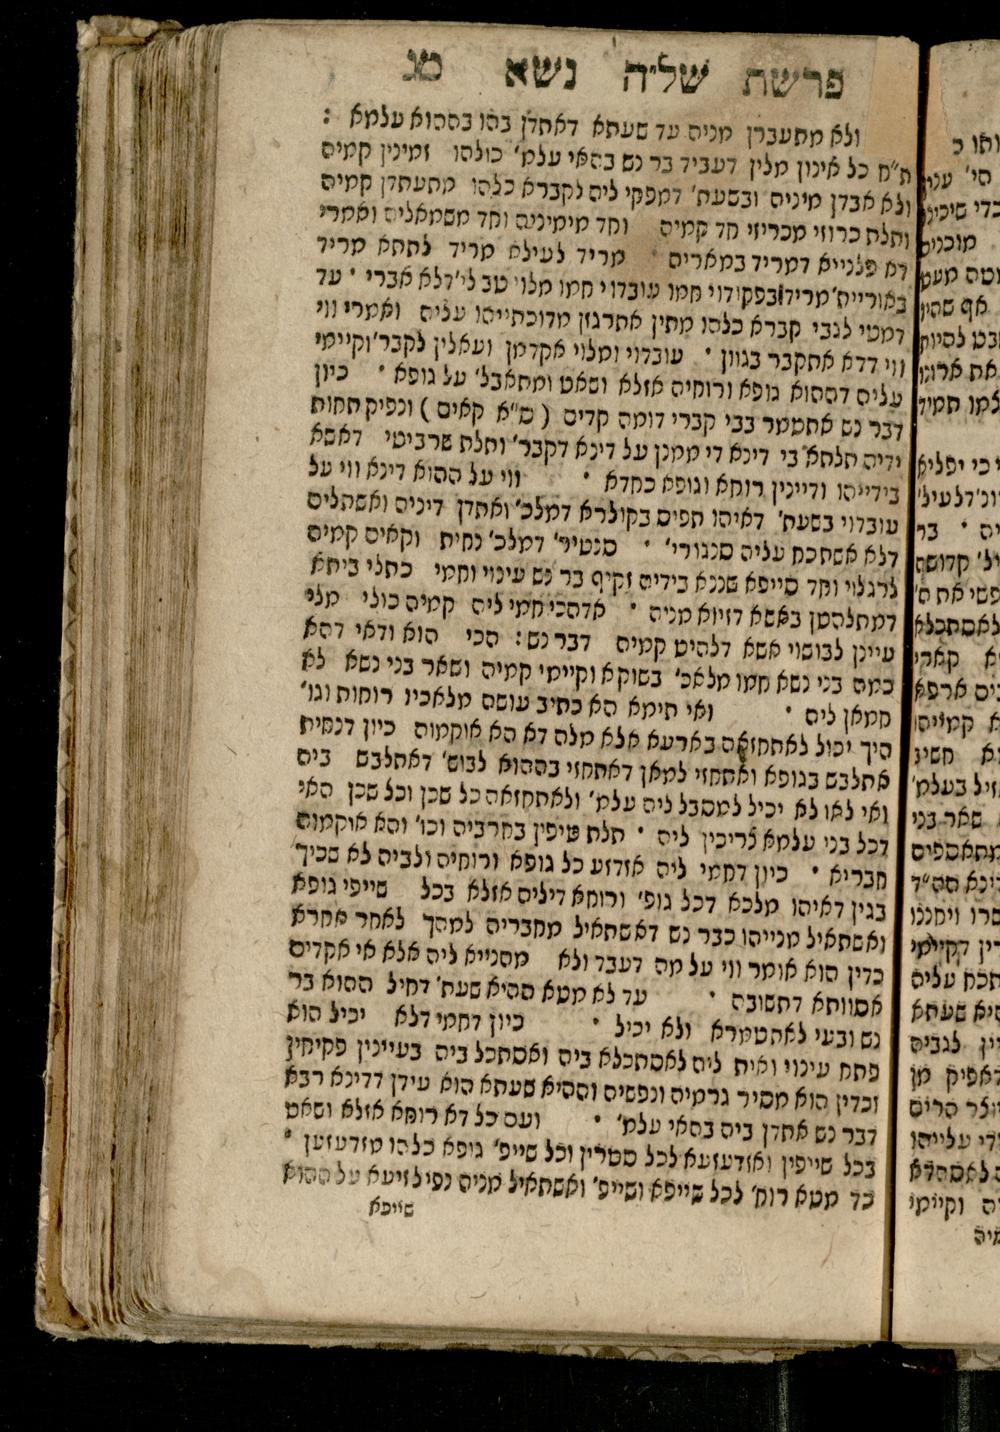 פרשת של״ה נשא מג
ולא מתעברן מניה עד שעתא דאתדן בהו בההוא עלמא :
ת״ח כל אינון מלין דעביד בר נש בהאי עלמ׳ כולהו זמינין קמיה
ולא אבדן מיניה ובשעת׳ דמפקי ליה לקברא כלהו מתעתדן קמיה
ותלת כרוזי מכריזי חד קמיה וחד מימיניה וחד משמאליה ואמרי
דא פלנייא דמריד במאריה ׳ מריד לעילא מריד לתתא מריד
באורייה׳ מריד בפקודוי חמו עובדוי חמו מלוי טב לי׳ דלא אברי ׳ עד
דמטי לגבי קברא כלהו מתין אתרגזן מדוכתייהו עליה ואמרי ווי
ווי דדא אתקבר בגוון ׳ עובדוי ומלוי אקדמן ועאלין לקבר׳ וקיימי
עליה דההוא גופא ורוחיה אזלא ושאט ומתאבל׳ על גופא ׳ כיון
דבר נש אתטמר בבי קברי דומה קדים ( ס״א קאים ) ונפיק תחות
ידיה תלתא בי דינא די ממנן על דינא דקבר׳ ותלת שרביטי דאשא
בידייהו ודיינין רוחא וגופא כחדא ׳ ווי על ההוא דינא ווי על
עובדוי בשעת׳ דאיהו תפיס בקולרא דמלכ׳ ואתדן דיניה ואשתלים
דלא אשתכח עליה סנגורי׳ ׳ סנטיר׳ דמלכ׳ נחית וקאים קמיה
לרגלוי וחד סייפא שננא בידיה זקיף בר נש עינוי וחמי כתלי ביתא
דמתלהטן באשא דזיוא מניה ׳ אדהכי חמי ליה קמיה כולי מלי
עיינין לבושוי אשא דלהיט קמיה דבר נש : הכי הוא ודאי דהא
כמה בני נשא חמו מלאכ׳ בשוקא וקיימי קמיה ושאר בני נשא לא
חמאן ליה ׳ ואי תימא הא כתיב עושה מלאכיו רוחות וגו׳
היך יכול לאתחזאה בארעא אלא מלה דא הא אוקמוה כיון דנחית
אתלבש בגופא ואתחזי למאן דאתחזי בההוא לבוש׳ דאתלבש ביה
ואי לאו לא יכיל למסבל ליה עלמ׳ ולאתחזאה כל שכן וכל שכן האי
דכל בני עלמא צריכין ליה ׳ תלת טיפין בחרביה וכו׳ והא אוקמוה
חבריא ׳ כיון דחמי ליה אזדעזע כל גופא ורוחיה ולביה לא שכיך
בגין דאיהו מלכא דכל גופ׳ ורוחא דיליה אזלא בכל שייפי גופא
ואשתאיל מנייהו כבר נש דאשתאיל מחבריה למהך לאתר אחרא
כדין הוא אומר ווי על מה דעבד ולא מהנייא ליה אלא אי אקדים
אסוותא דתשובה ׳ עד לא מטא ההיא שעת׳ דחיל ההוא בר
נש ובעי לאתטמרא ולא יכיל ׳ כיון דחמי דלא יכיל הוא
פתח עינוי ואית ליה לאסתכלא ביה ואסתכל ביה בעיינין פקיחין
וכדין הוא מסיר גרמיה ונפשיה וההיא שעתא הוא עידן דדינא רבא
דבר נש אתדן ביה בהאי עלמ׳ ׳ ועם כל דא רוחא אזלא ושאט
בכל שייפין ואזדעזעא לכל סטרין וכל שייפ׳ גופא כלהו מזדעזען ׳
כד מטא רוח׳ לכל שייפא ושייפ׳ ואשתאיל מניה נפיל זיעא על ההוא
שייפא